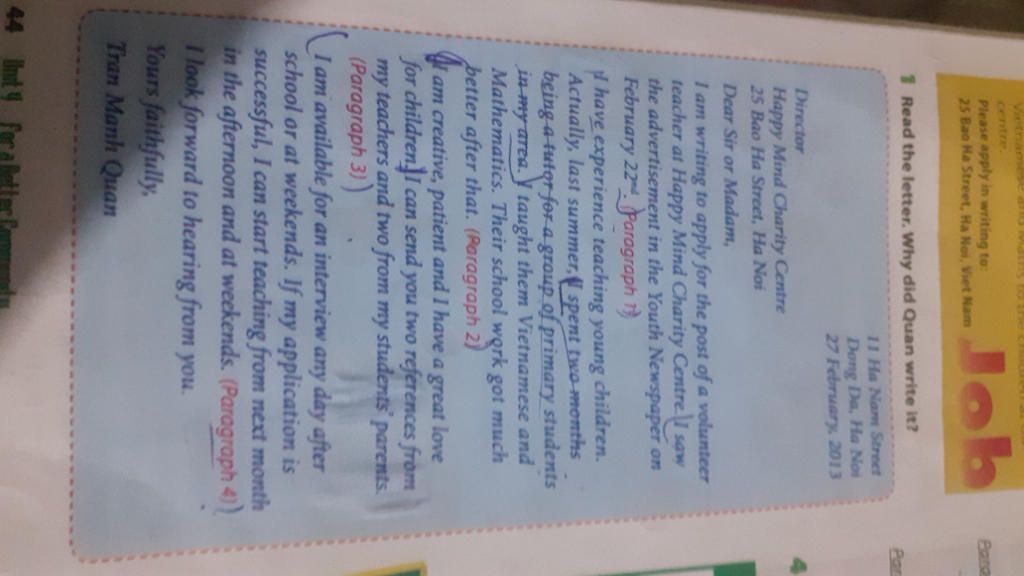 Please apply in writing to:
25 Bao Ha Street, Ha Noi, Viet Nam
Job
1 Read the letter. Why did Quan write it?
11 Ha Nam Street
Dong Da, Ha Noi
27 February, 2013
Director
Happy Mind Charity Centre
25 Bao Ha Street, Ha Noi
Dear Sir or Madam,
I am writing to apply for the post of a volunteer
teacher at Happy Mind Charity Centre. I saw
the advertisement in the Youth Newspaper on
February 22nd. (Paragraph 1)
I have experience teaching young children.
Actually, last summer, I spent two months
being a tutor for a group of primary students
in my area. I taught them Vietnamese and
Mathematics. Their school work got much
better after that. (Paragraph 2)
I am creative, patient and I have a great love
for children. I can send you two references from
my teachers and two from my students' parents.
(Paragraph 3)
I am available for an interview any day after
school or at weekends. If my application is
successful, I can start teaching from next month
in the afternoon and at weekends. (Paragraph 4)
I look forward to hearing from you.
Yours faithfully,
Tran Manh Quan
44 Unit 4 For a Better Community
4